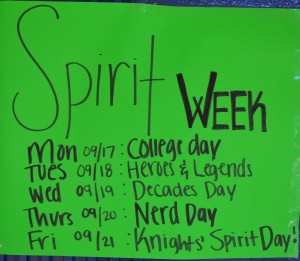 Spirit WEEK
Mon 09/17: College day
Tues 09/18: Heroes & Legends
Wed 09/19: Decades Day
Thurs 09/20: Nerd Day
Fri 09/21: Knights' Spirit Day!